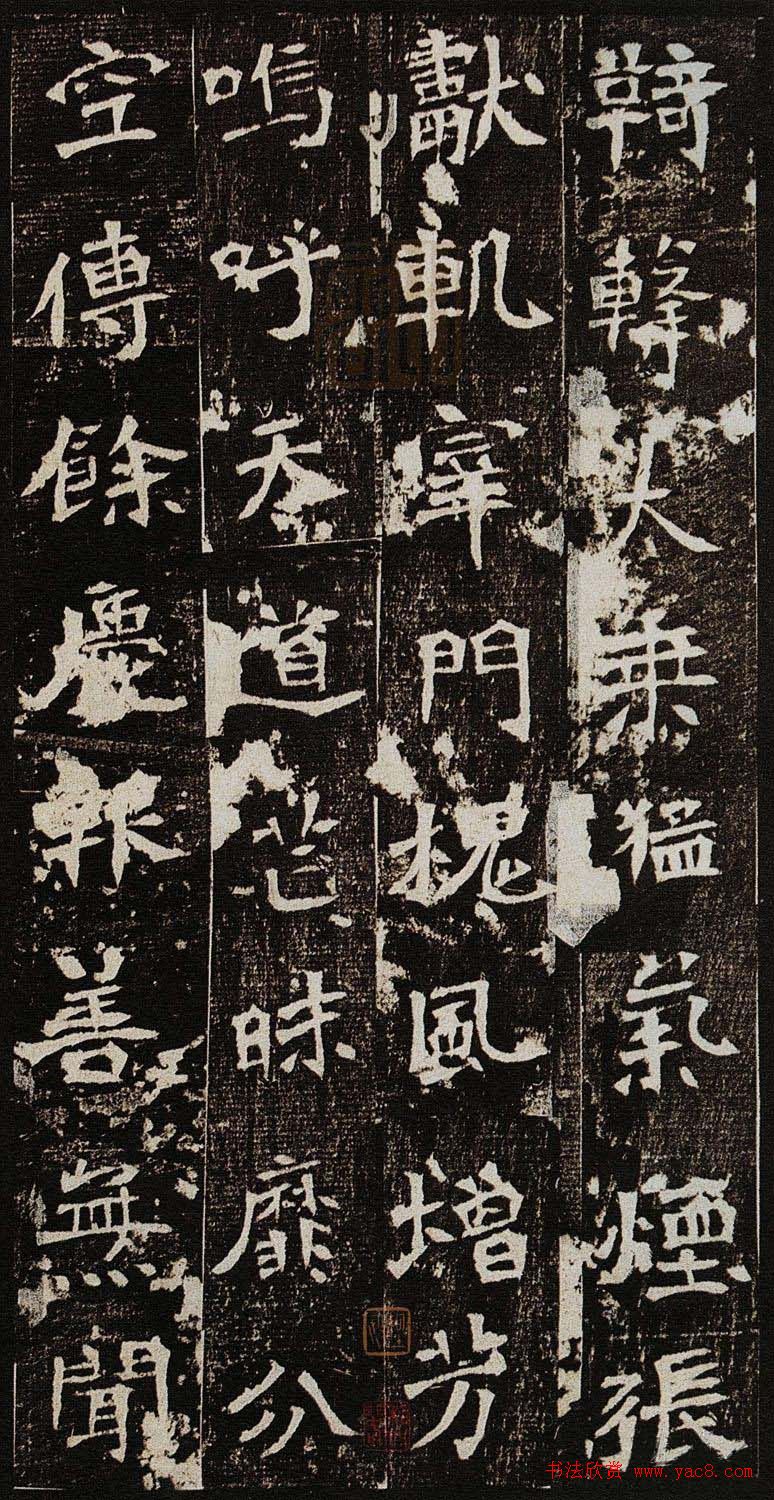 乗猛氣煙張
獻軌宰門槐風增芳
嗚呼天道芒昧靡分
空傳餘慶報善無聞
书法欣赏 www.yac8.com